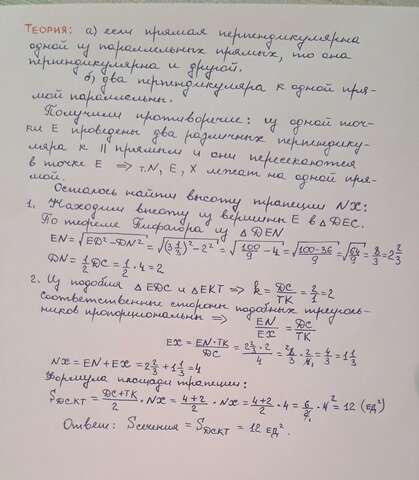 Теория: а) если прямая перпендикулярна
одной из параллельных прямых, то она
перпендикулярна и другой.
б) два перпендикуляра к одной пря-
мой параллельны.
Получили противоречие: из одной точ-
ки Е проведены два различных перпендику-
ляра к || прямым и они пересекаются
в точке Е ⇒ т.N, E, X лежат на одной пря-
мой.
Осталось найти высоту трапеции NX:
1. Находим высоту из вершины Е в △DEC.
По теореме Пифагора из △DEN
EN = √(ED² - DN²) = √((3 1/3)² - 2²) = √(100/9 - 4) = √((100-36)/9) = √(64/9) = 8/3 = 2 2/3
DN = 1/2 DC = 1/2 · 4 = 2
2. Из подобия △EDC и △EKT ⇒ k = DC/TK = 2/1 = 2
Соответственные стороны подобных треуголь-
ников пропорциональны ⇒ EN/EX = DC/TK
EX = EN·TK/DC = 2 2/3 · 2/4 = 8/3 · 2/4 = 4/3 = 1 1/3
NX = EN + EX = 2 2/3 + 1 1/3 = 4
Формула площади трапеции:
S DCKT = (DC+TK)/2 · NX = (4+2)/2 · NX = (4+2)/2 · 4 = 6/2 · 4 2 = 12 (ед²)
Ответ: S сечения = S DCKT = 12 ед².